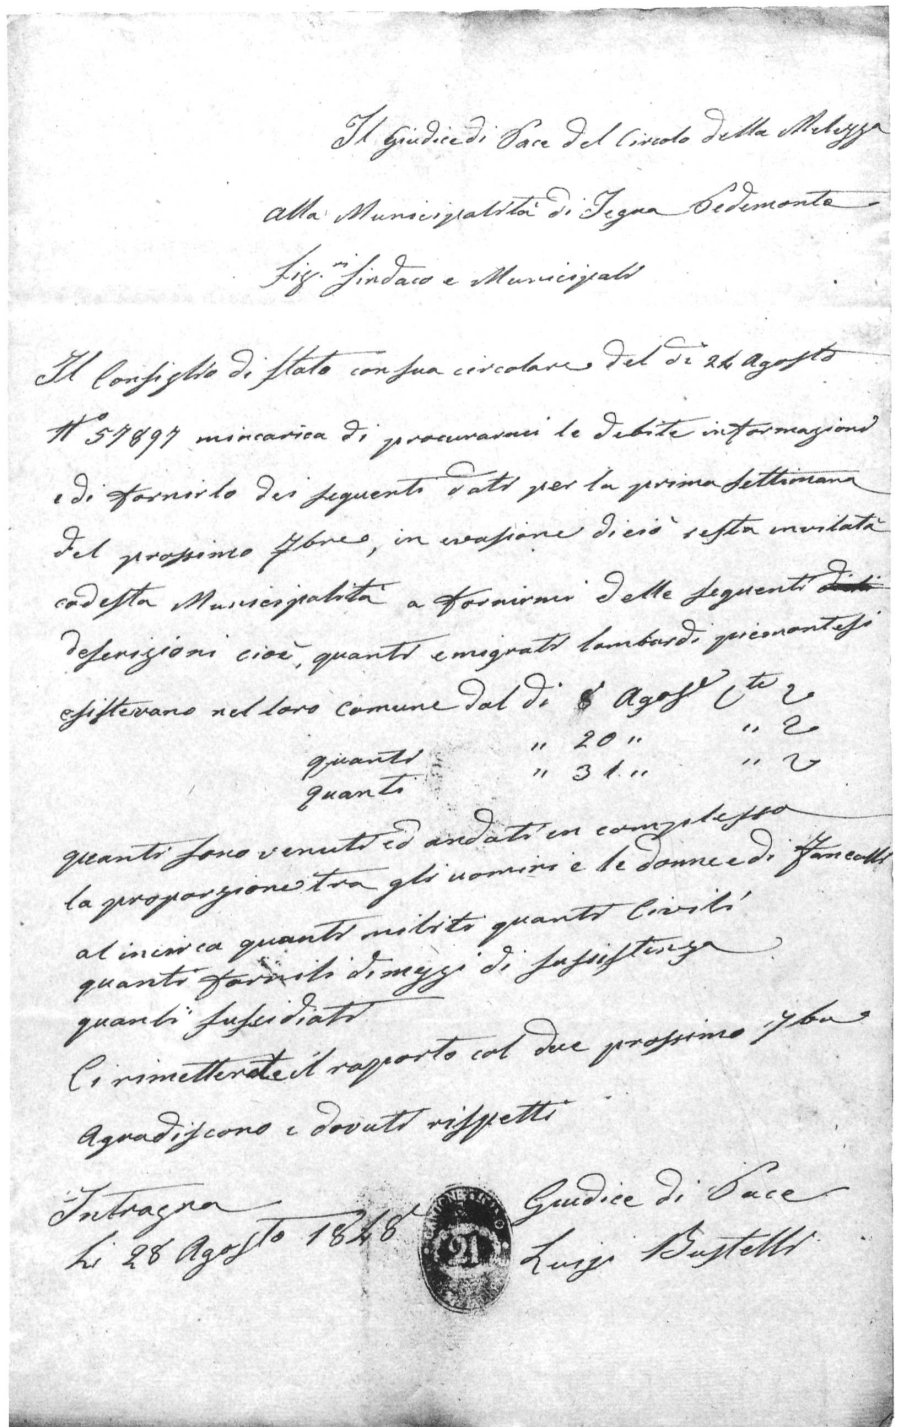 Il Giudice di Pace del Circolo della Melezza
alla Municipalità di Tegna Pedemonte
Sig.ri Sindaco e Municipali
Il Consiglio di Stato con sua circolare del dì 24 Agosto
N° 57897 mincarica di procurarmi le debite informazioni
e di fornirlo dei seguenti dati per la prima settimana
del prossimo 7bre, in evasione di ciò resta invitata
codesta Municipalità a fornirmi delle seguenti
descrizioni cioè, quanti emigrati lombardi piemontesi
esistevano nel loro comune dal di 8 Agos.to C.te ?
quanti " 20 " " ?
quanti " 31 " " ?
quanti sono venuti ed andati in complesso
la proporzione tra gli uomini e le donne e di fanciulli
al incirca quanti militi quanti Civili
quanti forniti di mezzi di sussistenza
quanti sussidiati
Ci rimetterete il raporto col due prossimo 7bre
Agradiscono i dovuti rispetti
Intragna
Li 28 Agosto 1848
Giudice di Pace
Luigi Bustelli
CANTONE TICINO
21